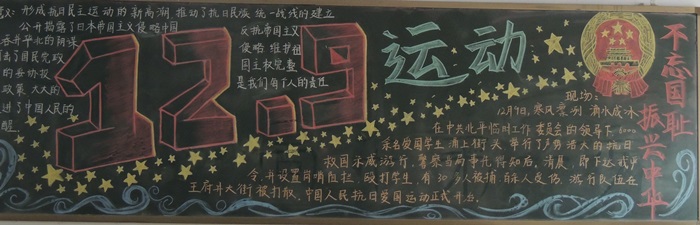 义: 形成抗日民主运动的新高潮, 推动了抗日民族统一战线的建立
公开揭露了日本帝国主义侵略中国
吞并华北的阴谋
出了国民党政
的妥协投
政策 大大的
进了中国人民的
醒.
反抗帝国主义
侵略 维护祖
国主权完整
是我们每个人的责任
12.9
运动
不忘国耻
振兴中华
现场:
12月9日, 寒风凛冽 滴水成冰
在中共北平临时工作委员会的领导下6000
余名爱国学生涌上街头 举行了声势浩大的抗日
救国示威游行. 警察当局事先得知后, 清晨, 即下达戒严
令, 并设置岗哨阻拦 殴打学生, 有30多人被捕 百余人受伤. 游行队伍在
王府井大街被打散. 中国人民抗日爱国运动正式开始.